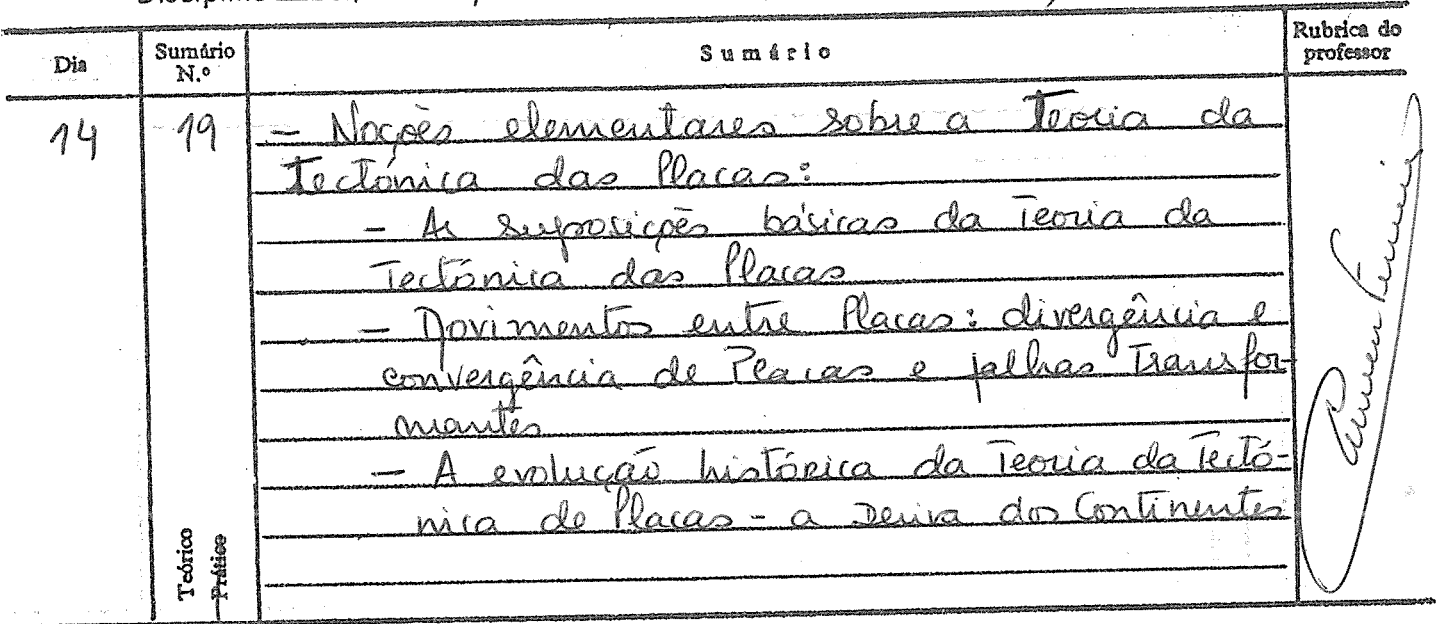 Dia
Sumário N.º
Sumário
Rubrica do professor
14
19
- Noções elementares sobre a Teoria da
Tectónica das Placas:
- As suposições básicas da Teoria da
Tectónica das Placas
- Movimentos entre Placas: divergência e
convergência de Placas e falhas Transfor-
mantes
- A evolução histórica da Teoria da Tectó-
nica de Placas - a Deriva dos Continentes
Teórico
Prático